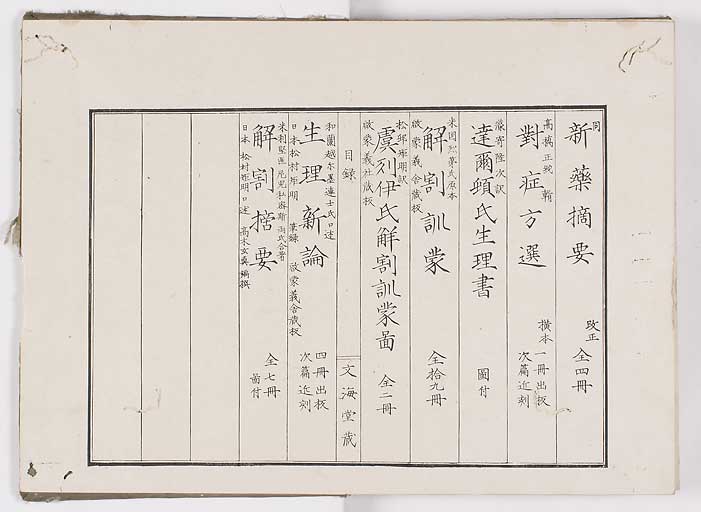 同
新藥摘要
改正
全四冊
高橋正純 輯
對症方選
横本
一冊出板
次篇近刻
藤寄隆次訳
達爾頓氏生理書
圖付
米國 氏原本
啟蒙義舍蔵板
解割訓蒙
全拾九冊
松邨矩明訳
啟蒙義社蔵板
虞列伊氏解割訓蒙啚
全二冊
目録
文海堂蔵
和蘭越尔墨連士氏口述
日本松村矩明 筆録
啟蒙義舍蔵板
生理新論
四冊出板
次篇近刻
米利堅 両氏合著
日本 松村矩明口述 高木玄真編撰
解割揩要
全七冊
啚付